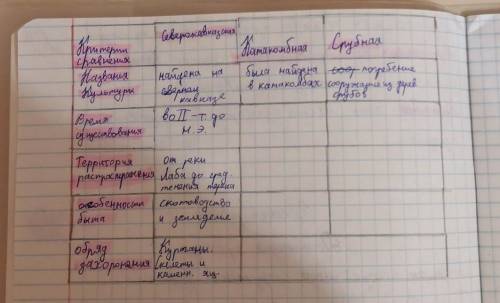 Критерти
сравнения
Северокавказская
Катакомбная
Срубная
Названия
Культуры
найдена на
кавказе
была найдена
в катакомбах
погребение
сооружали из дерев
срубов
Время
существования
во II-т. до
н.э.
Территория
распространения
от реки
Лаба до сред.
течения терека
особенности
быта
скотоводство
и земледелие
обряд
захоронения
Курганы.
скелеты и
каменн. ящ.